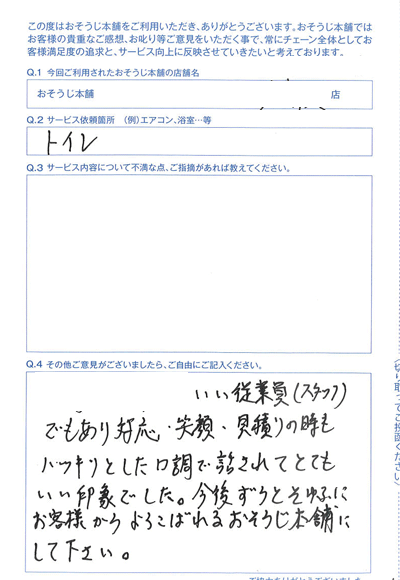 この度はおそうじ本舗をご利用いただき、ありがとうございます。おそうじ本舗では
お客様の貴重なご感想、お叱り等ご意見をいただく事で、常にチェーン全体としてお
客様満足度の追求と、サービス向上に反映させていきたいと考えております。
Q.1 今回ご利用されたおそうじ本舗の店舗名
おそうじ本舗 店
Q.2 サービス依頼箇所 (例)エアコン、浴室…等
トイレ
Q.3 サービス内容について不満な点、ご指摘があれば教えてください。
Q.4 その他ご意見がございましたら、ご自由にご記入ください。
いい従業員(スタッフ)
でもあり好応、笑顔、見積りの時も
ハッキリとした口調で話されてとても
いい印象でした。今後ずうと
お客様からよろこばれるおそうじ本舗に
して下さい。
(切り取ってご投函ください)